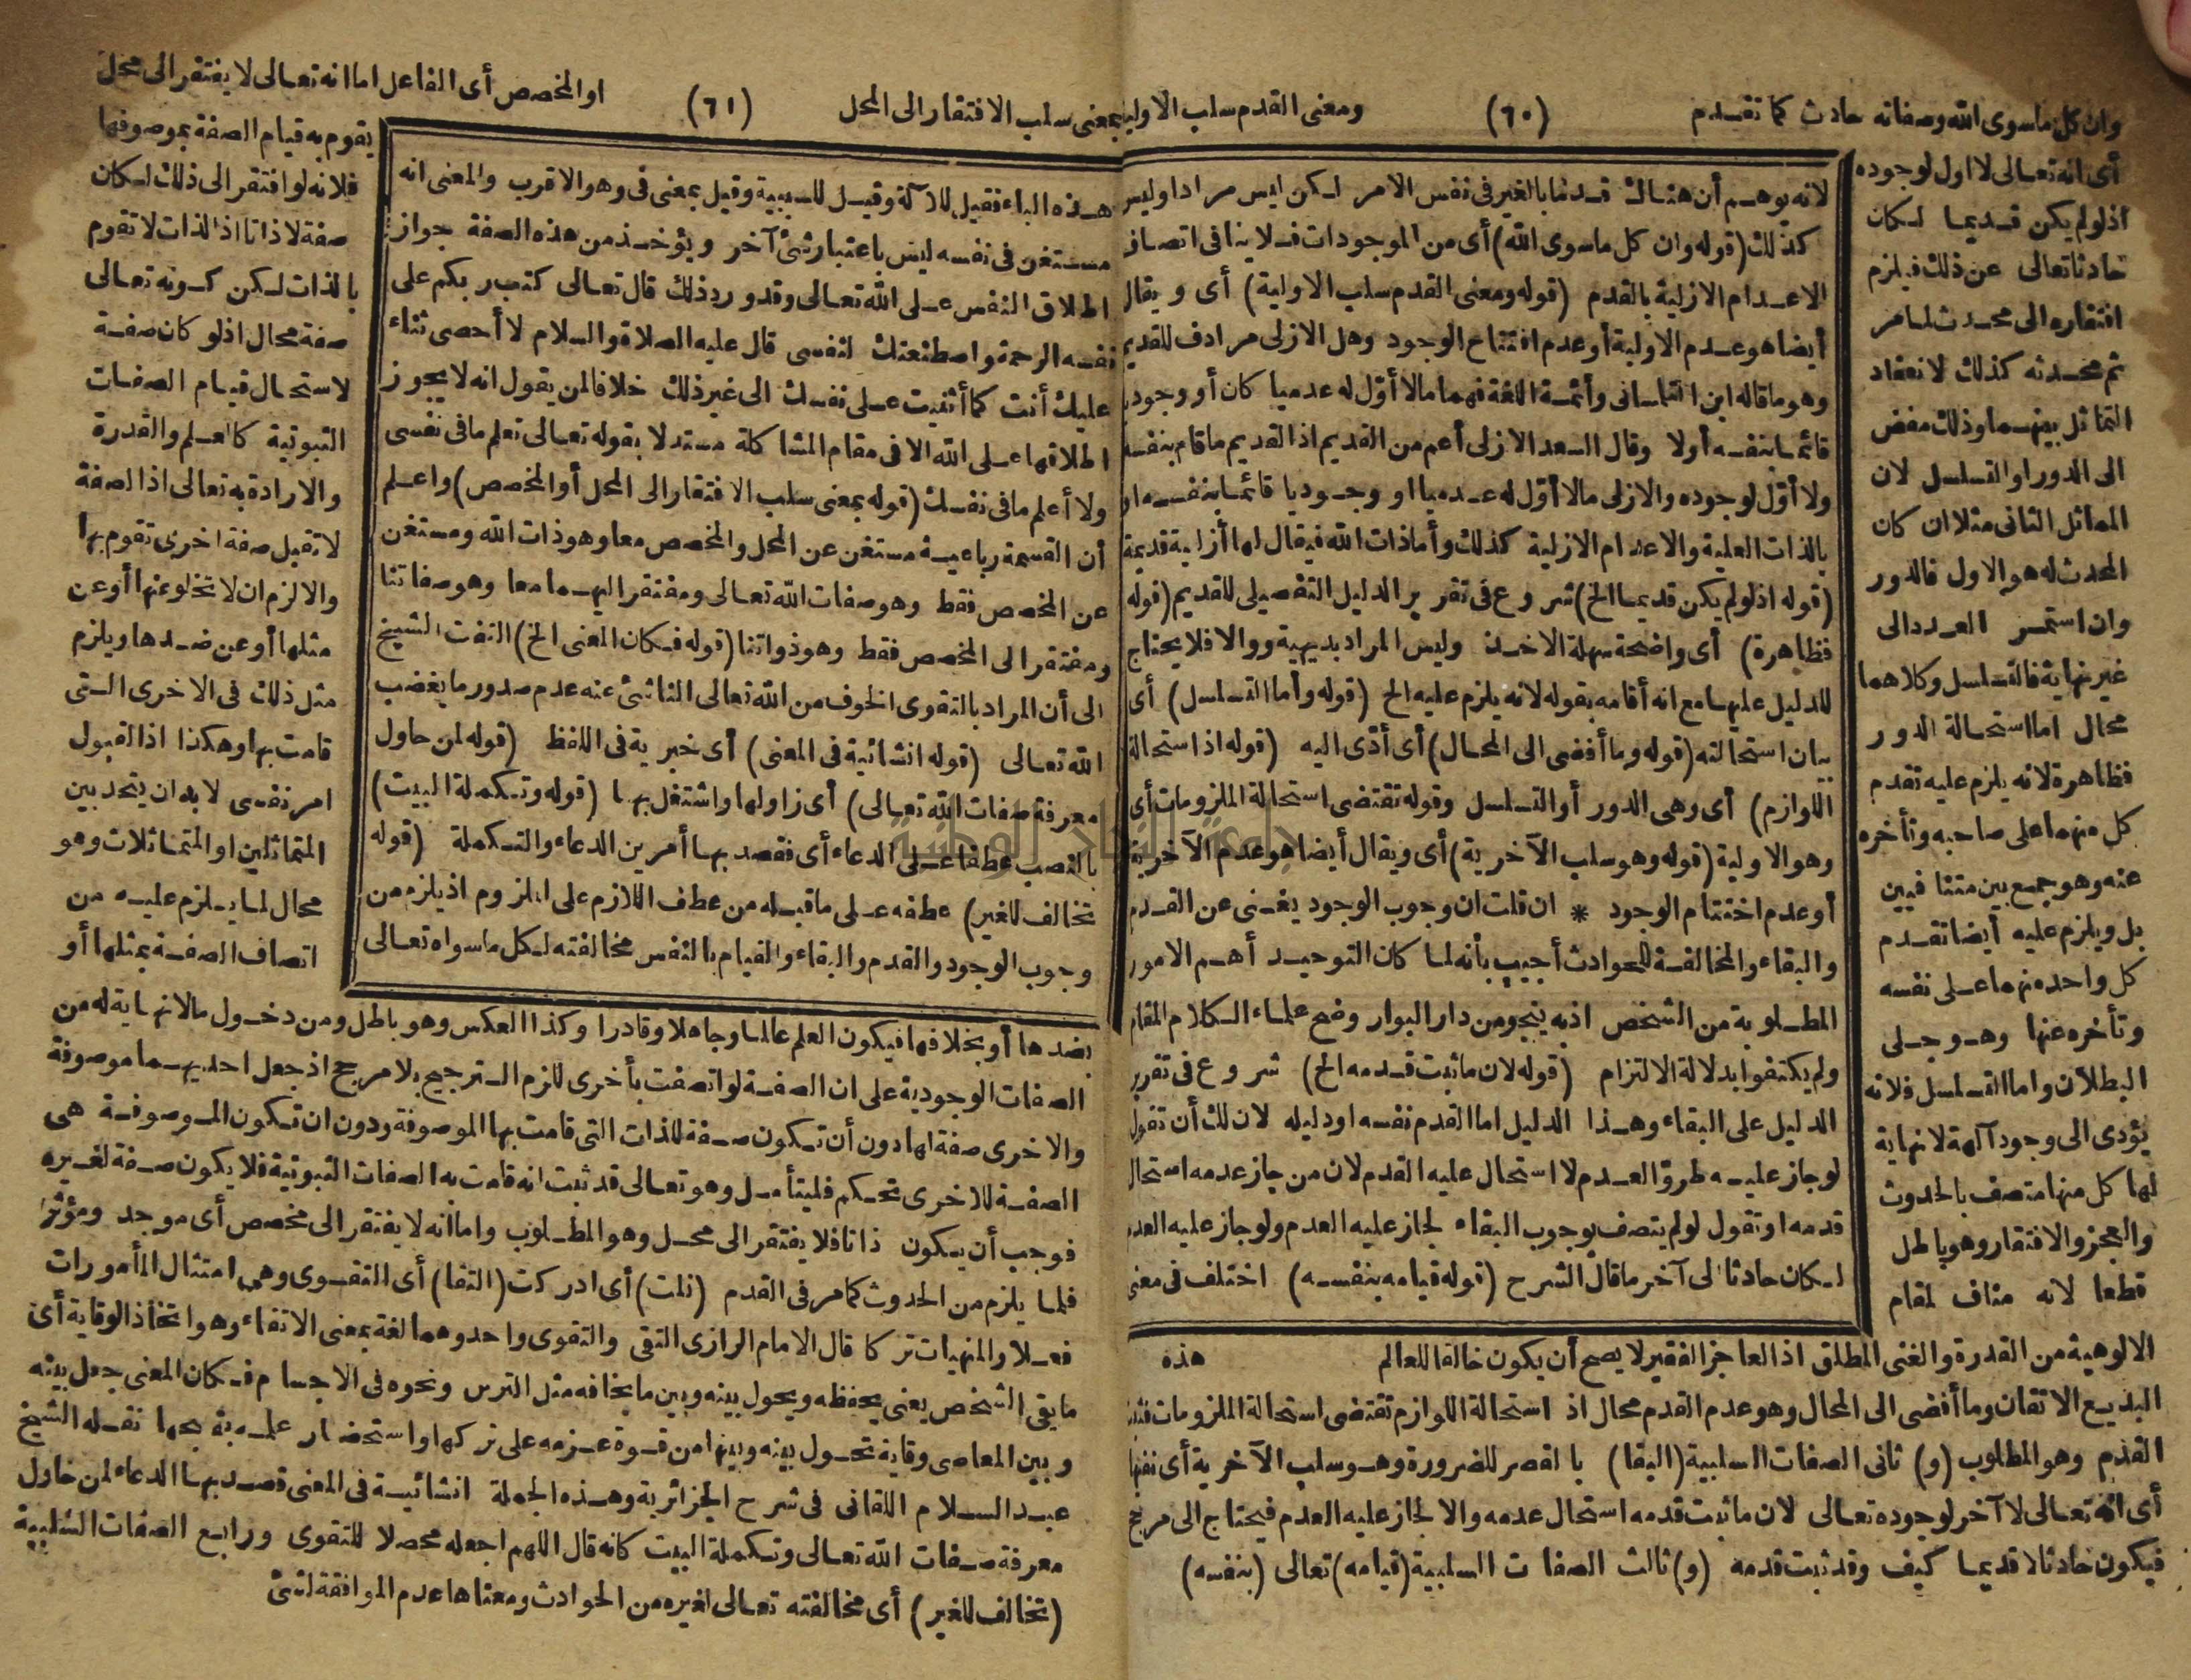 وان كل ماسوى الله وصفاته حادث كما تقدم
(٦٠)
ومعنى القدم سلب الاولية
أى انه تعالى لا اول لوجوده
اذ لو لم يكن قديما لكان
حادثا تعالى عن ذلك فيلزم
افتقاره الى محدث لما مر
ثم محدثه كذلك لانعقاد
التماثل بينهما وذلك مفض
الى الدور او التسلسل لان
المماثل الثانى مثلا ان كان
المحدث له هو الاول فالدور
وان استمر العدد الى
غير نهاية فالتسلسل وكلاهما
محال اما استحالة الدور
فظاهرة لانه يلزم عليه تقدم
كل منهما على صاحبه وتأخره
عنه وهو جمع بين متنافيين
بل ويلزم عليه أيضا تقدم
كل واحد منهما على نفسه
وتأخره عنها وهو جلى
البطلان واما التسلسل فلانه
يؤدى الى وجود آلهة لا نهاية
لها كل منها متصف بالحدوث
والعجز والافتقار وهو باطل
قطعا لانه مناف لمقام
الالوهية من القدرة والغنى المطلق اذ العاجز الفقير لا يصح أن يكون خالقا للعالم
البديع الاتقان وما أفضى الى المحال وهو عدم القدم محال اذ استحالة اللوازم تقتضى استحالة الملزومات فثبت
القدم وهو المطلوب (و) ثانى الصفات السلبية (البقا) بالقصر للضرورة وهو سلب الآخرية أى نفيها
أى انه تعالى لا آخر لوجوده تعالى لان ما ثبت قدمه استحال عدمه والا لجاز عليه العدم فيحتاج الى مرجح
فيكون حادثا لا قديما كيف وقد ثبت قدمه (و) ثالث الصفات السلبية (قيامه) تعالى (بنفسه)
لانه يوهم أن هناك قدما بالغير فى نفس الامر لكن ليس مرادا وليس
كذلك (قوله وان كل ماسوى الله) أى من الموجودات فلا ينافى اتصاف
الاعدام الازلية بالقدم (قوله ومعنى القدم سلب الاولية) أى ويقال
أيضا هو عدم الاولية أو عدم افتتاح الوجود وهل الازلى مرادف للقديم
وهو ما قاله ابن التلمسانى وأئمة اللغة فهما مالا أوّل له عدميا كان أو وجوديا
قائما بنفسه أولا وقال السعد الازلى أعم من القديم اذ القديم ما قام بنفسه
ولا أوّل لوجوده والازلى مالا أوّل له عدميا او وجوديا قائما بنفسه او
بالذات العلية والاعدام الازلية كذلك وأما ذات الله فيقال لها أزلية قديمة
(قوله اذ لو لم يكن قديما الخ) شروع فى تقرير الدليل التفصيلى للقديم (قوله
فظاهرة) أى واضحة سهلة الاخذ وليس المراد بديهية ووالا فلا يحتاج
للدليل عليها مع انه أقامه بقوله لانه يلزم عليه الخ (قوله وأما التسلسل) أى
بيان استحالته (قوله وما أفضى الى المحال) أى أدّى اليه (قوله اذ استحالة
اللوازم) أى وهى الدور أو التسلسل وقوله تقتضى استحالة الملزومات أى
وهو الاولية (قوله وهو سلب الآخرية) أى ويقال أيضا هو عدم الآخرية
أو عدم اختتام الوجود * ان قلت ان وجوب الوجود يغنى عن القدم
والبقاء والمخالفة للحوادث أجيب بأنه لما كان التوحيد أهم الامور
المطلوبة من الشخص اذ به ينجو من دار البوار وضح علماء الكلام المقام
ولم يكتفوا بدلالة الالتزام (قوله لان ما ثبت قدمه الخ) شروع فى تقرير
الدليل على البقاء وهذا الدليل اما القدم نفسه او دليله لان لك أن تقول
لو جاز عليه طروّ العدم لاستحال عليه القدم لان من جاز عدمه استحال
قدمه او تقول لو لم يتصف بوجوب البقاء لجاز عليه العدم ولو جاز عليه العدم
لكان حادثا الى آخر ما قال الشرح (قوله قيامه بنفسه) اختلف فى معنى
هذه
بمعنى سلب الافتقار الى المحل
(٦١)
او المخصص أى الفاعل اما انه تعالى لا يفتقر الى محل
هذه الباء فقيل للآلة وقيل للسببية وقيل بمعنى فى وهو الاقرب والمعنى انه
مستغن فى نفسه ليس باعتبار شئ آخر ويؤخذ من هذه الصفة جواز
اطلاق النفس على الله تعالى وقد ورد ذلك قال تعالى كتب ربكم على
نفسه الرحمة واصطنعتك لنفسى قال عليه الصلاة والسلام لا أحصى ثناء
عليك أنت كما أثنيت على نفسك الى غير ذلك خلافا لمن يقول انه لا يجوز
اطلاقها على الله الا فى مقام المشاكلة مستدلا بقوله تعالى تعلم ما فى نفسى
ولا أعلم ما فى نفسك (قوله بمعنى سلب الافتقار الى المحل أو المخصص) واعلم
أن القسمة رباعية مستغن عن المحل والمخصص معا وهو ذات الله ومستغن
عن المخصص فقط وهو صفات الله تعالى ومفتقر اليهما معا وهو صفاتنا
ومفتقر الى المخصص فقط وهو ذواتنا (قوله فكان المعنى الخ) التفت الشيخ
الى أن المراد بالتقوى الخوف من الله تعالى الناشئ عنه عدم صدور ما يغضب
الله تعالى (قوله انشائية فى المعنى) أى خبرية فى اللفظ (قوله لمن حاول
معرفة صفات الله تعالى) أى زاولها واشتغل بها (قوله وتكملة البيت)
بالنصب عطفا على الدعاء أى فقصد بها أمرين الدعاء والتكملة (قوله
تخالف للغير) عطفه على ما قبله من عطف اللازم على الملزوم اذ يلزم من
وجوب الوجود والقدم والبقاء والقيام بالنفس مخالفته لكل ما سواه تعالى
يقوم به قيام الصفة بموصوفها
فلانه لو افتقر الى ذلك لكان
صفة لا ذاتا اذ الذات لا تقوم
بالذات لكن كونه تعالى
صفة محال اذ لو كان صفة
لاستحال قيام الصفات
الثبوتية كالعلم والقدرة
والارادة به تعالى اذ الصفة
لا تقبل صفة اخرى تقوم بها
والا لزم ان لا تخلو عنها أو عن
مثلها أو عن ضدها ويلزم
مثل ذلك فى الاخرى التى
قامت بها وهكذا اذ القبول
امر نفسى لا بد ان يتحد بين
المتماثلين او المتماثلات وهو
محال لما يلزم عليه من
اتصاف الصفة بمثلها أو
بضدها أو بخلافها فيكون العلم عالما وجاهلا وقادرا وكذا العكس وهو باطل ومن دخول مالا نهاية له من
الصفات الوجودية على ان الصفة لو اتصفت بأخرى للزم الترجيح بلا مرجح اذ جعل احديهما موصوفة
والاخرى صفة لها دون أن تكون صفة للذات التى قامت بها الموصوفة ودون ان تكون الموصوفة هى
الصفة للاخرى تحكم فليتأمل وهو تعالى قد ثبت انه قامت به الصفات الثبوتية فلا يكون صفة لغيره
فوجب أن يكون ذاتا فلا يفتقر الى محل وهو المطلوب واما انه لا يفتقر الى مخصص أى موجد ومؤثر
فلما يلزم من الحدوث كما مر فى القدم (نلت) أى ادركت (التقا) أى التقوى وهى امتثال المأمورات
فعلا والمنهيات تركا قال الامام الرازى التقى والتقوى واحد وهما لغة بمعنى الاتقاء وهو اتخاذ الوقاية أى
ما يقى الشخص يعنى يحفظه ويحول بينه وبين ما يخافه مثل الترس ونحوه فى الاجسام فكان المعنى جعل بينه
وبين المعاصى وقاية تحول بينه وبينها من قوة عزمه على تركها واستحضار علمه بقبحها نقله الشيخ
عبد السلام اللقانى فى شرح الجزائرية وهذه الجملة انشائية فى المعنى قصد بها الدعاء لمن حاول
معرفة صفات الله تعالى وتكملة البيت كانه قال اللهم اجعله محصلا للتقوى ورابع الصفات السلبية
(تخالف للغير) أى مخالفته تعالى لغيره من الحوادث ومعناها عدم الموافقة لشئ